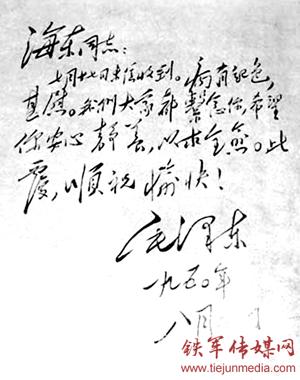 海东同志：
七月廿七日来信收到。病有起色，
甚慰。我们大家都繫念你，希望
你安心静养，以求全愈。此
覆，顺祝愉快！
毛泽东
一九五〇年
八月
铁军传媒网
www.tiejunmedia.com